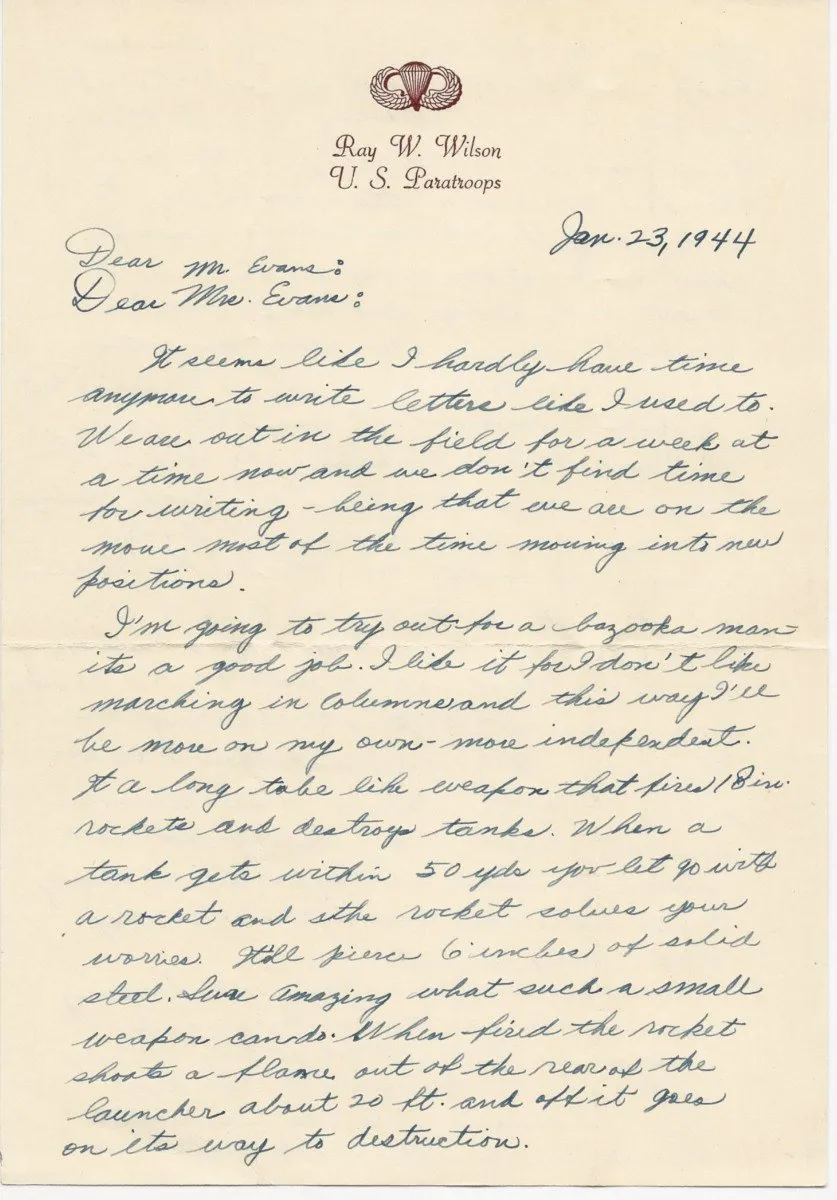 Ray W. Wilson
U. S. Paratroops
Jan. 23, 1944
Dear Mr. Evans:
Dear Mrs. Evans:
It seems like I hardly have time
anymore to write letters like I used to.
We are out in the field for a week at
a time now and we don't find time
for writing - being that we are on the
move most of the time moving into new
positions.
I'm going to try out for a bazooka man-
its a good job. I like it for I don't like
marching in columns and this way I'll
be more on my own - more independent.
It a long tube like weapon that fires 18 in.
rockets and destroys tanks. When a
tank gets within 50 yds you let go with
a rocket and the rocket solves your
worries. It'll pierce 6 inches of solid
steel. Sure amazing what such a small
weapon can do. When fired the rocket
shoots a flame out of the rear of the
launcher about 20 ft. and off it goes
on its way to destruction.